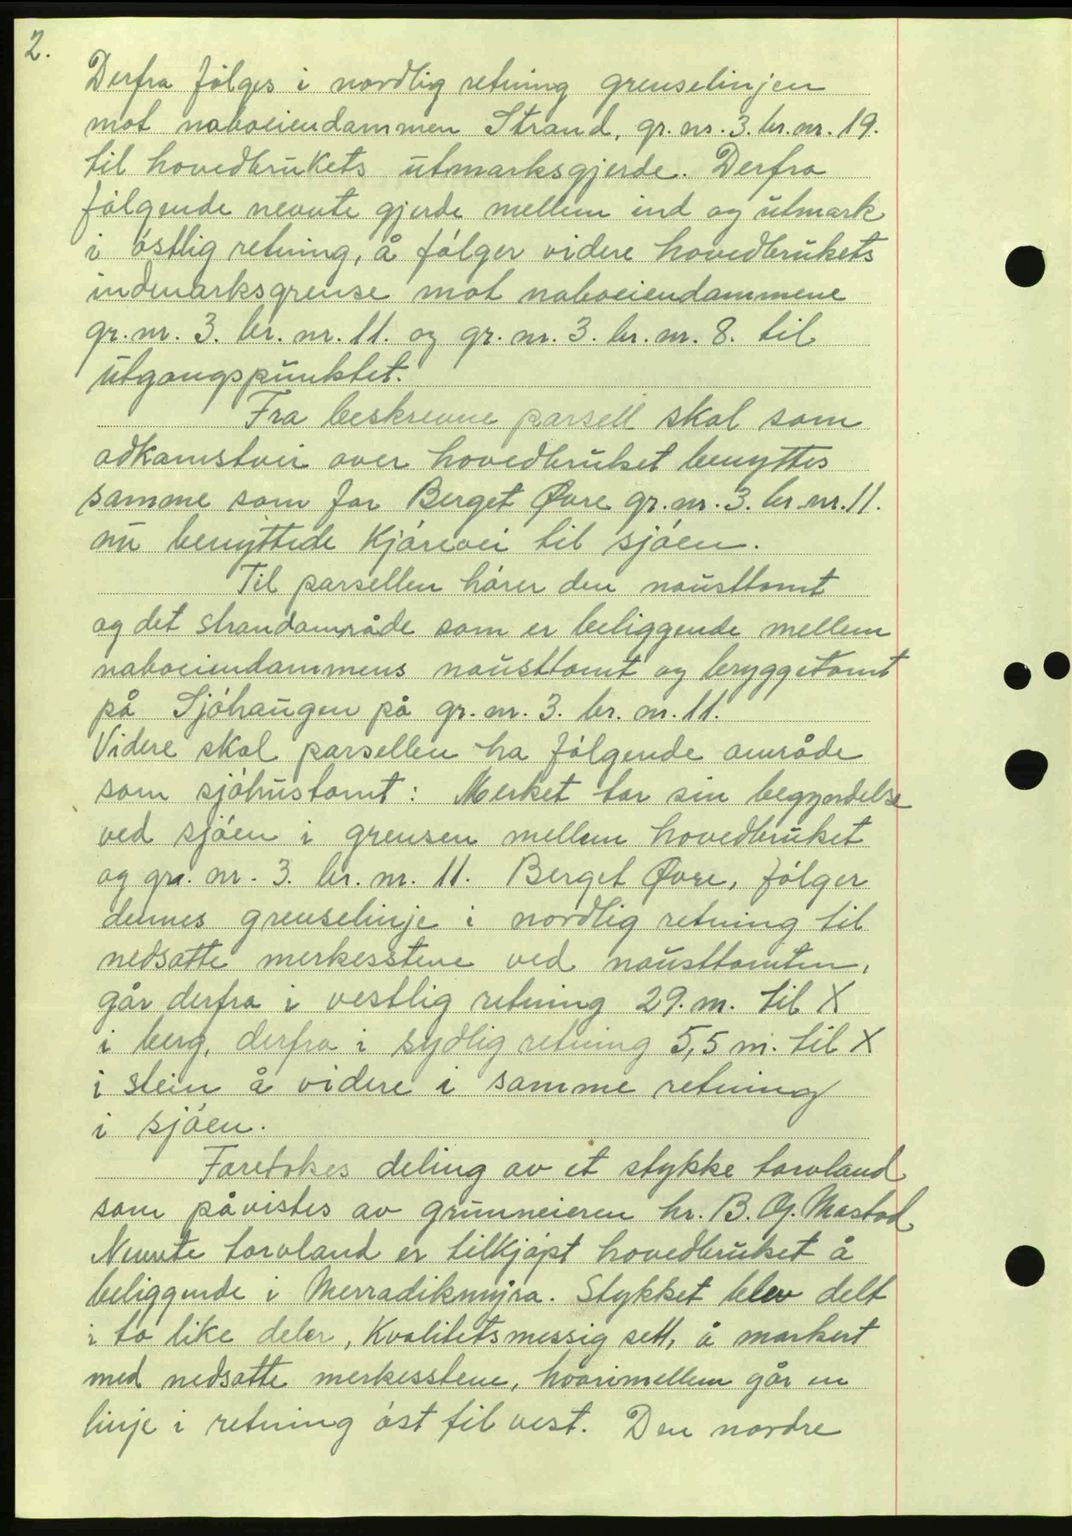 2.
Derfra følges i nordlig retning grenselinjen
mot naboeiendammen Strand, gr. nr. 3. br. nr. 19.
til hovedbrukets utmarksgjerde. Derfra
følgende nevnte gjerde mellem ind og utmark
i østlig retning, å følger videre hovedbrukets
indmarksgrense mot naboeiendammene
gr. nr. 3. br. nr. 11. og gr. nr. 3. br. nr. 8. til
utgangspunktet.
Fra beskrevne parsell skal som
adkomstvei over hovedbruket benyttes
samme som for Berget Øvre gr. nr. 3. br. nr. 11.
nu benyttede Kjørevei til sjøen.
Til parsellen hører den nausttomt
og det strandområde som er beliggende mellem
naboeiendammens nausttomt og bryggetomt
på Sjøhaugen på gr. nr. 3. br. nr. 11.
Videre skal parsellen ha følgende område
som sjøhustomt: Merket tar sin begyndelse
ved sjøen i grensen mellem hovedbruket
og gr. nr. 3. br. nr. 11. Berget Øvre, følger
dennes grenselinje i nordlig retning til
nedsatte merkesstene ved nausttomten,
går derfra i vestlig retning 29. m. til X
i berg, derfra i sydlig retning 5,5 m. til X
i stein å videre i samme retning
i sjøen.
Foretokes deling av et stykke torvland
som påvistes av grunneieren hr. B. O. Mastad
Nevnte torvland er tilkjøpt hovedbruket å
beliggende i Merradikmyra. Stykket blev delt
i to like deler, Kvalitetsmessig sett, å markert
med nedsatte merkesstene, hvorimellem går en
linje i retning øst til vest. Den nordre